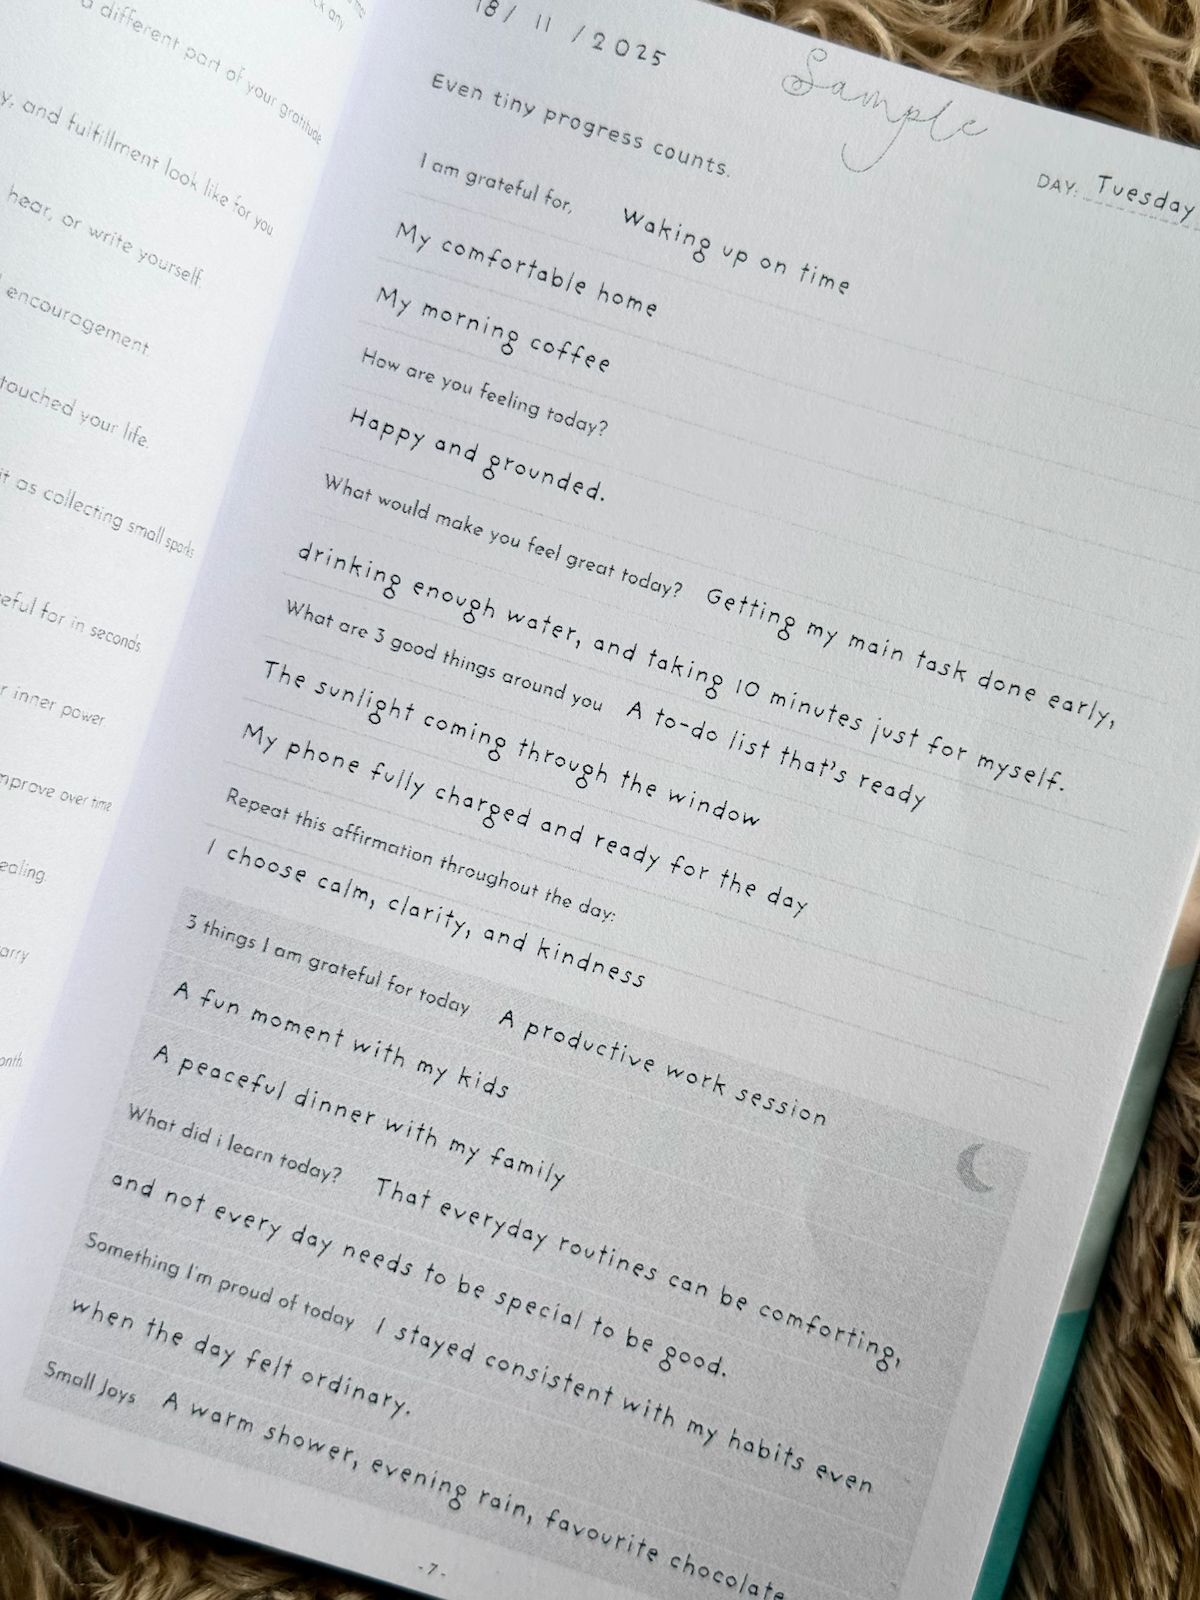 a different part of your gratitude
and fulfillment look like for you
hear, or write yourself.
encouragement.
touched your life.
it as collecting small sparks
for in seconds.
inner power.
improve over time
18/ 11 /2025
Sample
Even tiny progress counts.
DAY: Tuesday
I am grateful for, Waking up on time
My comfortable home
My morning coffee
How are you feeling today?
Happy and grounded.
What would make you feel great today? Getting my main task done early,
drinking enough water, and taking 10 minutes just for myself.
What are 3 good things around you A to-do list that's ready
The sunlight coming through the window
My phone fully charged and ready for the day
Repeat this affirmation throughout the day:
I choose calm, clarity, and kindness
3 things I am grateful for today A productive work session
A fun moment with my kids
A peaceful dinner with my family
What did i learn today? That everyday routines can be comforting,
and not every day needs to be special to be good.
Something I'm proud of today I stayed consistent with my habits even
when the day felt ordinary.
Small Joys A warm shower, evening rain, favourite chocolate
-7-